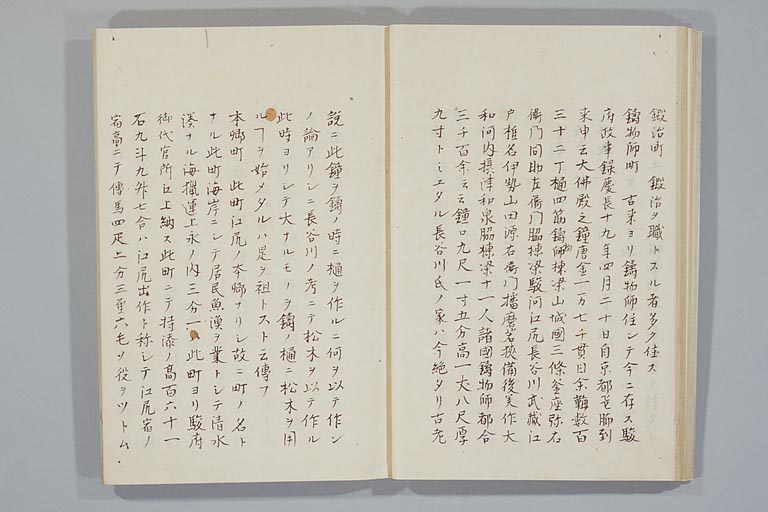 鍛治町 鍛治ヲ職トスル者多ク住ス
鑄物師町 古来ヨリ鑄物師住シテ今ニ存ス駿
府政事録慶長十九年四月二十日自京都飛脚到
来申云大佛殿之鐘唐金一万七千貫目余鞴数百
三十二丁樋四筋鑄物師棟梁山城國三條釜座弥右
衛門同助左衛門脇棟梁駿河江尻長谷川武蔵江
戸椎名伊勢山田源右衛門播磨若狭備後美作大
和河内摂津和泉脇棟梁十一人諸國鑄物師都合
三千百余云云鐘口九尺一寸五分高一丈八尺厚
九寸トミエタル長谷川氏ノ家ハ今絶タリ古老
説ニ此鐘ヲ鑄ノ時ニ樋ヲ作ルニ何ヲ以テ作ン
ノ論アリシニ長谷川ノ考ニテ松木ヲ以テ作ル
此時ヨリシテ大ナルモノヲ鑄ノ樋ニ松木ヲ用
ルヿヲ始メタルハ是ヲ祖トスト云傳フ
本郷町 此町江尻ノ本郷ナリシ故ニ町ノ名ト
ナル此町海岸ニシテ居民魚漁ヲ業トシテ清水
湊ナル海獵運上永ノ内三分一ハ此町ヨリ駿府
御代官所江上納ス此町ニテ持添ノ高百六十一
石九斗九升七合ハ江尻出作ト称シテ江尻宿ノ
宿高ニテ傳馬四疋二分三重六毛ヲ役ヲツトム